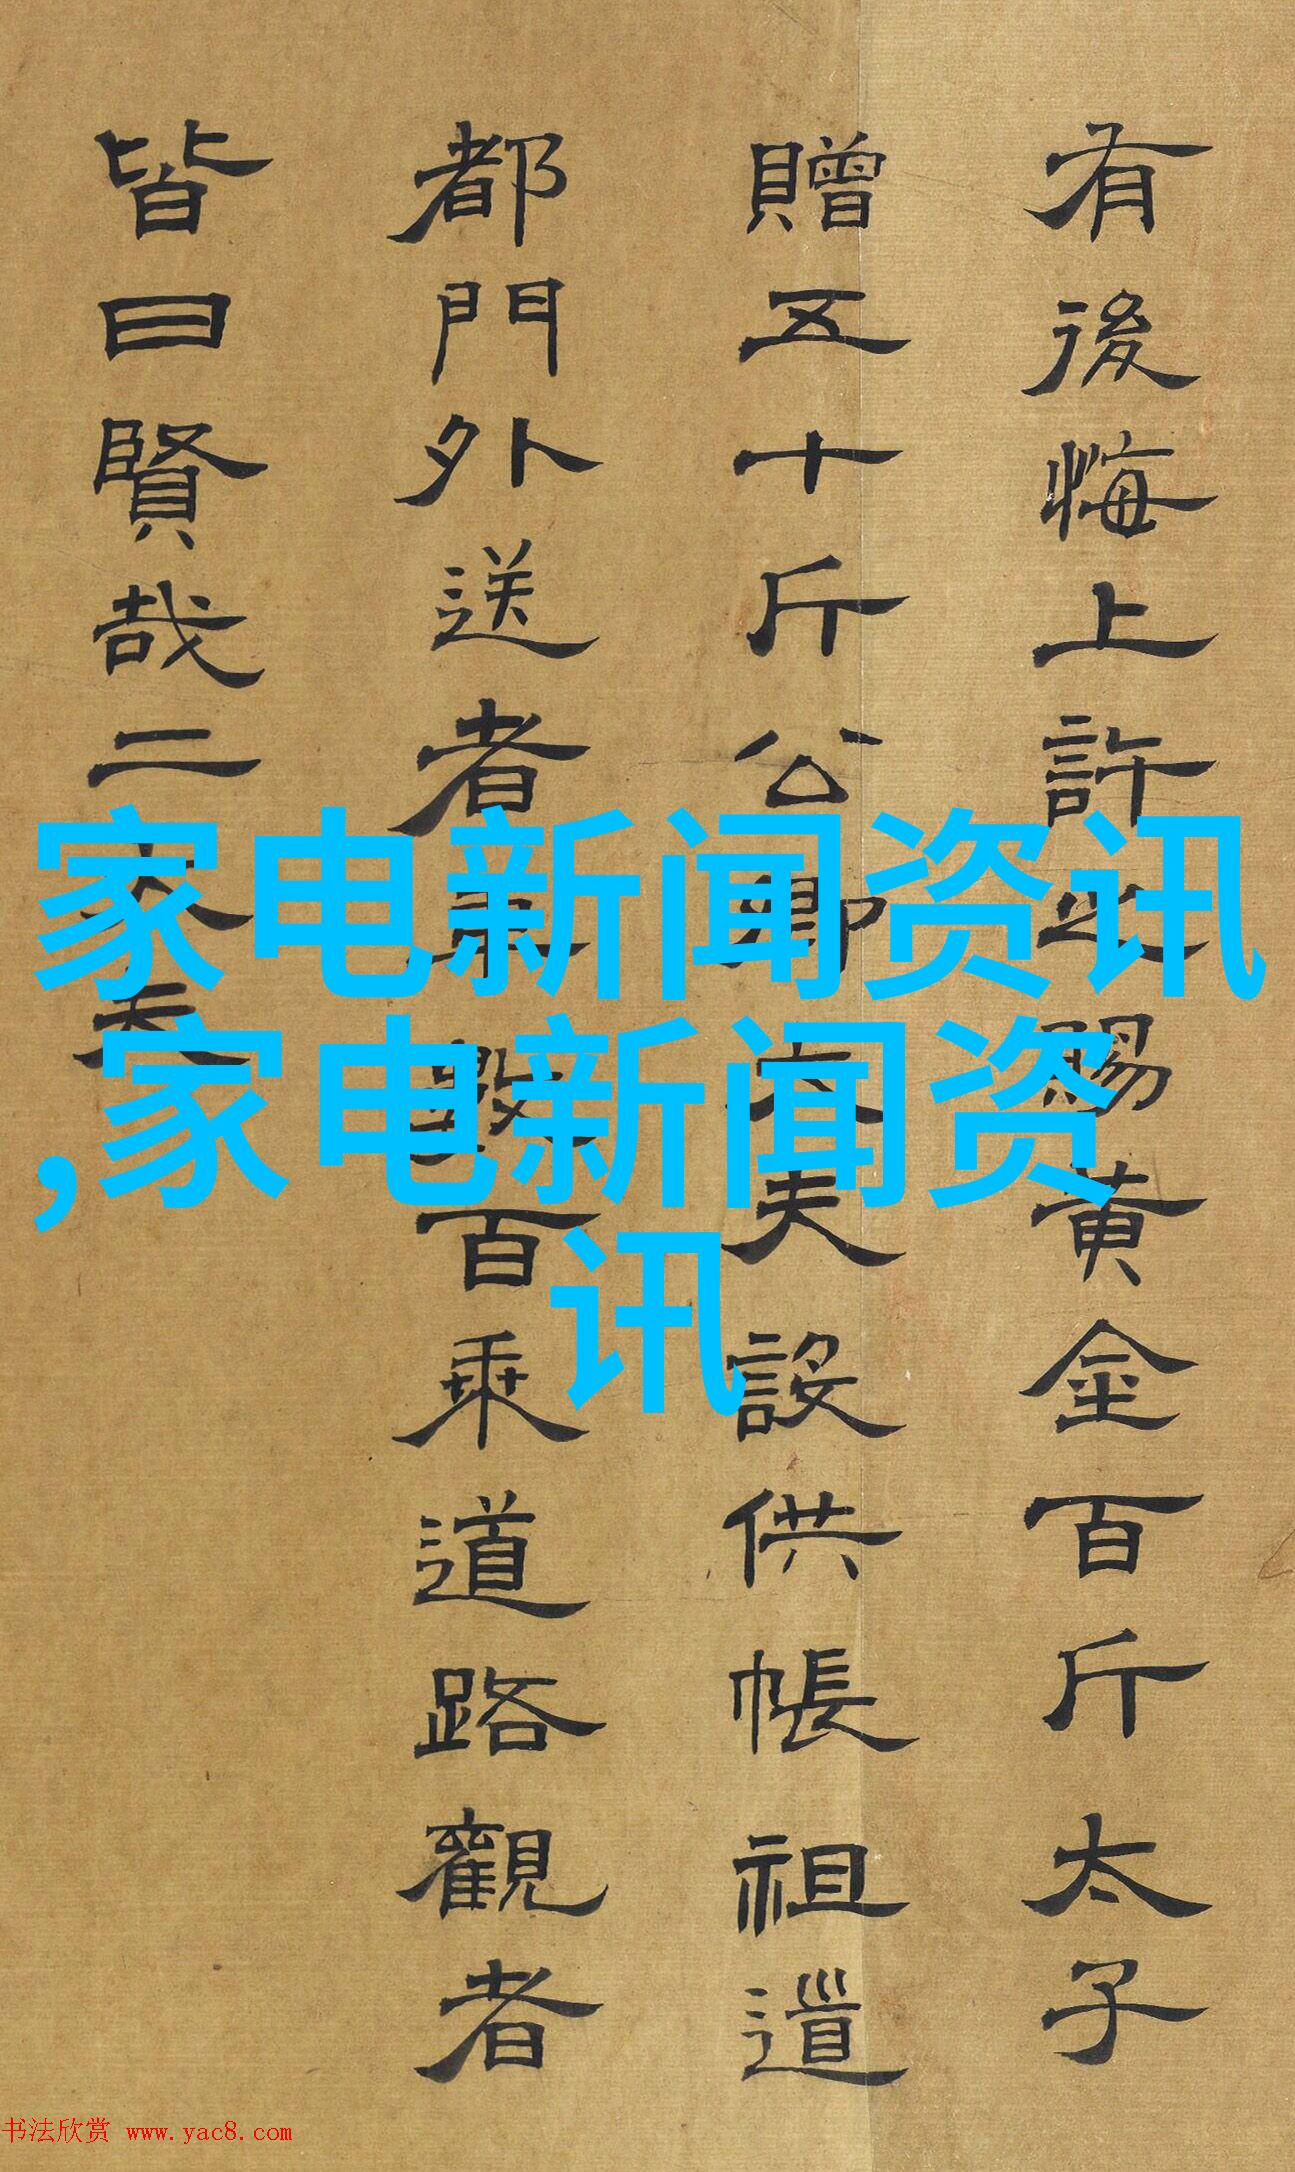 有後悔上許之賜黄金百斤太子
贈五十斤公卿大夫設供帳祖道
都門外送者車數百乘道路觀者
皆曰賢哉二大夫
家电新闻资讯
,家电新闻资
讯
书法欣赏 www.yac8.com